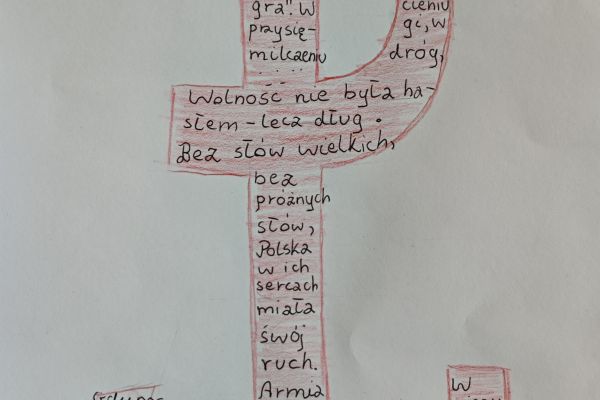 gra". W
cieniu
przysię-
gi, w
milczeniu
dróg,
Wolność nie była ha-
słem - lecz dług.
Bez słów wielkich,
bez
próżnych
słów,
Polska
w ich
sercach
miała
swój
ruch.
Armia
W